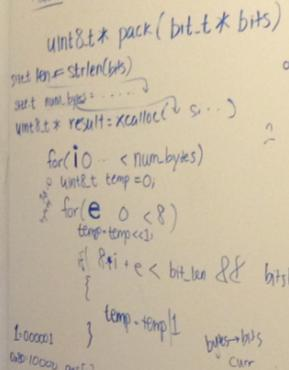 uint8_t* pack(bit_t* bits)
len = strlen(bits)
num_bytes = ......
uint8_t* result = xcalloc( s, ...)
for(i 0 ... < num_bytes)
uint8_t temp = 0;
for(e 0 < 8)
temp=temp<<1;
if( 8*i + e < bit_len && bits
{
temp = temp|1
}
1:000001
bytes→bits
curr